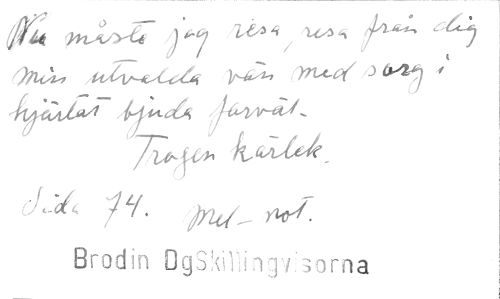 Nu måste jag resa, resa från dig
min utvalda vän med sorg i
hjärtat bjuda farväl.
Trogen kärlek.
Sida 74. Mel-not.
Brodin DgSkillingvisorna